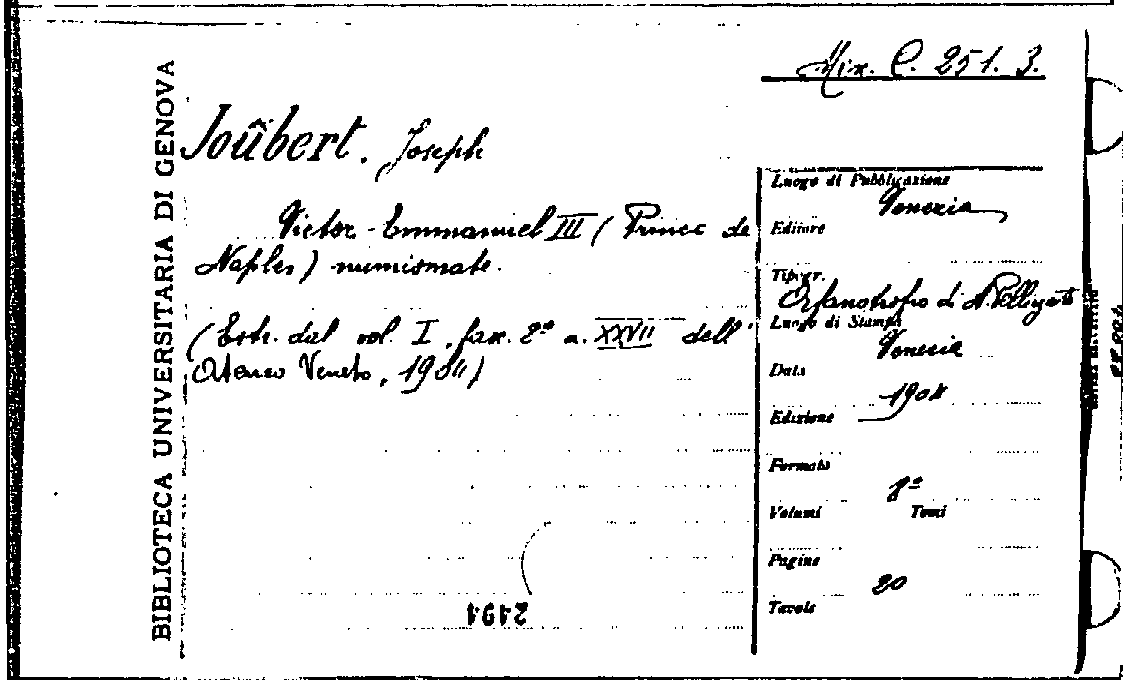 BIBLIOTECA UNIVERSITARIA DI GENOVA
Mix. C. 251. 3.
Joûbert, Joseph
Victor-Emmanuel III (Prince de
Naples) numismate.
(Estr. dal vol. I, fax. 2º a. XXVII dell'
Ateneo Veneto, 1904)
Luogo di Pubblicazione
Venezia
Editore
Tipogr.
Orfanotrofio di A. Pellizzato
Luogo di Stampa
Venezia
Data
1904
Edizione
Formato
8º
Volumi Tomi
Pagine
20
Tavole
2494